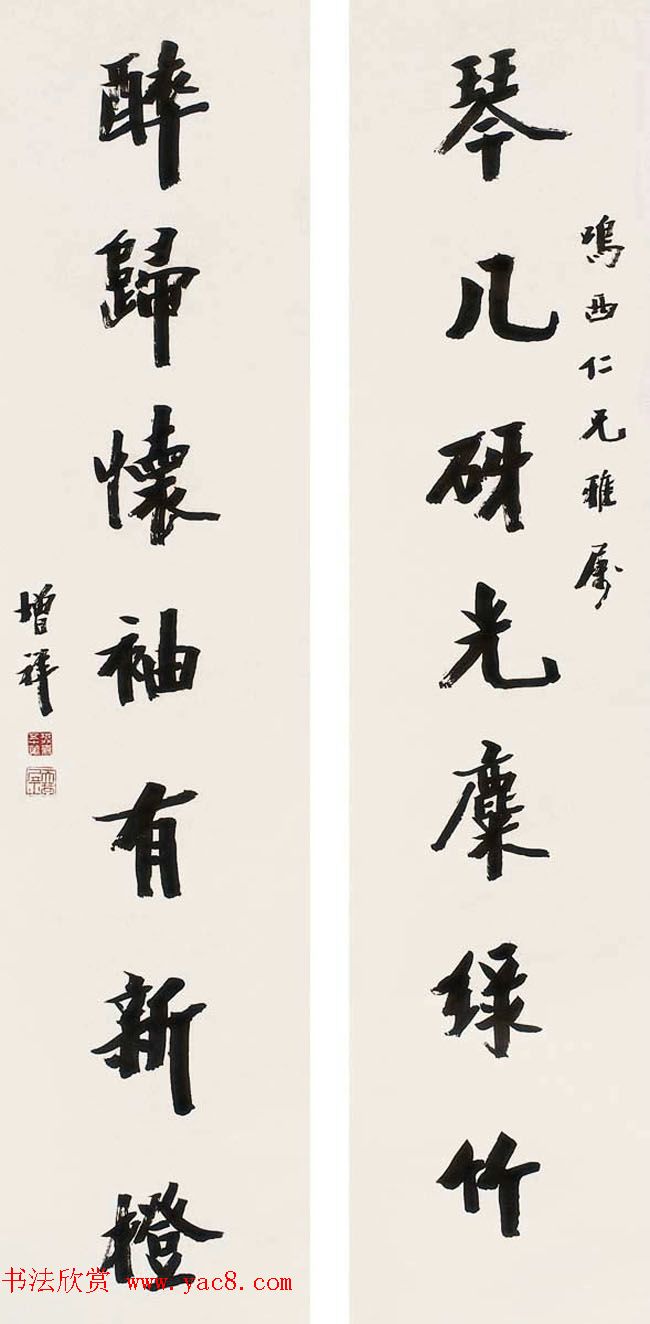 鳴西仁兄雅屬
琴几砑光麋綠竹
醉歸懷袖有新橙
增祥
书法欣赏 www.yac8.com